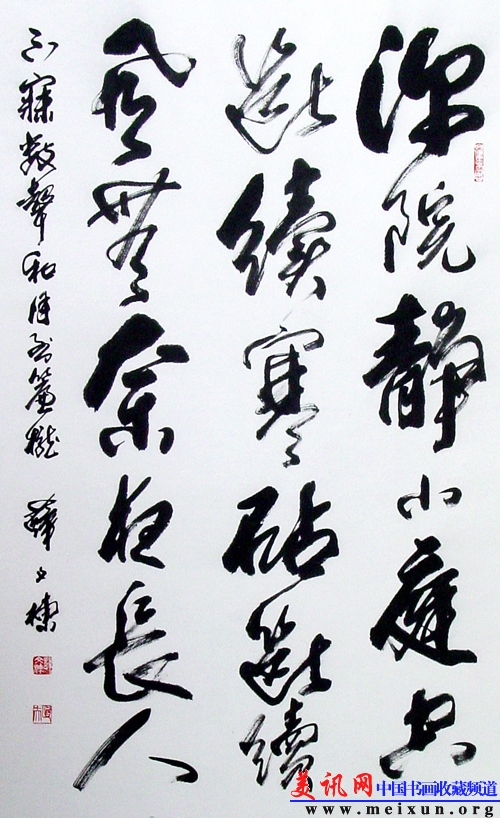 深院靜小庭空
斷續寒砧斷續
風無奈夜長人
不寐數聲和月到簾櫳 薛
美讯网 中国书画收藏频道
www.meixun.org